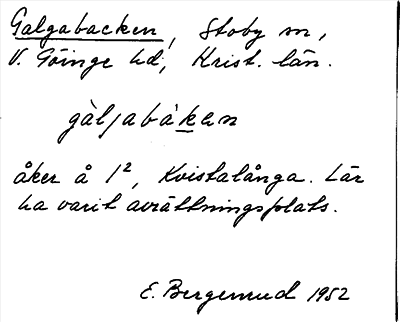 Galgabacken, Stoby sn,
V. Göinge hd, Krist. län.
gàljabàkan
åker å 1², Kvistalånga. Lär
ha varit avrättningsplats.
E. Bergerud 1952